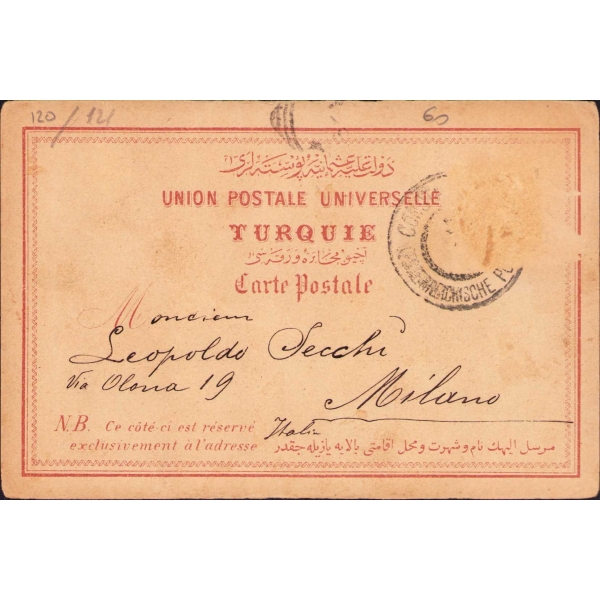 120/121
60
دولت علیهٔ عثمانیه پوسته‌لری
UNION POSTALE UNIVERSELLE
TURQUIE
Carte Postale
Moncieur
Leopoldo Secchi
Via Olona 19
Milano
Italia
N.B. Ce côté-ci est réservé
exclusivement à l'adresse
مرسل الیهك نام و شهرت و محل اقامتی بالایه یازیله جقدر